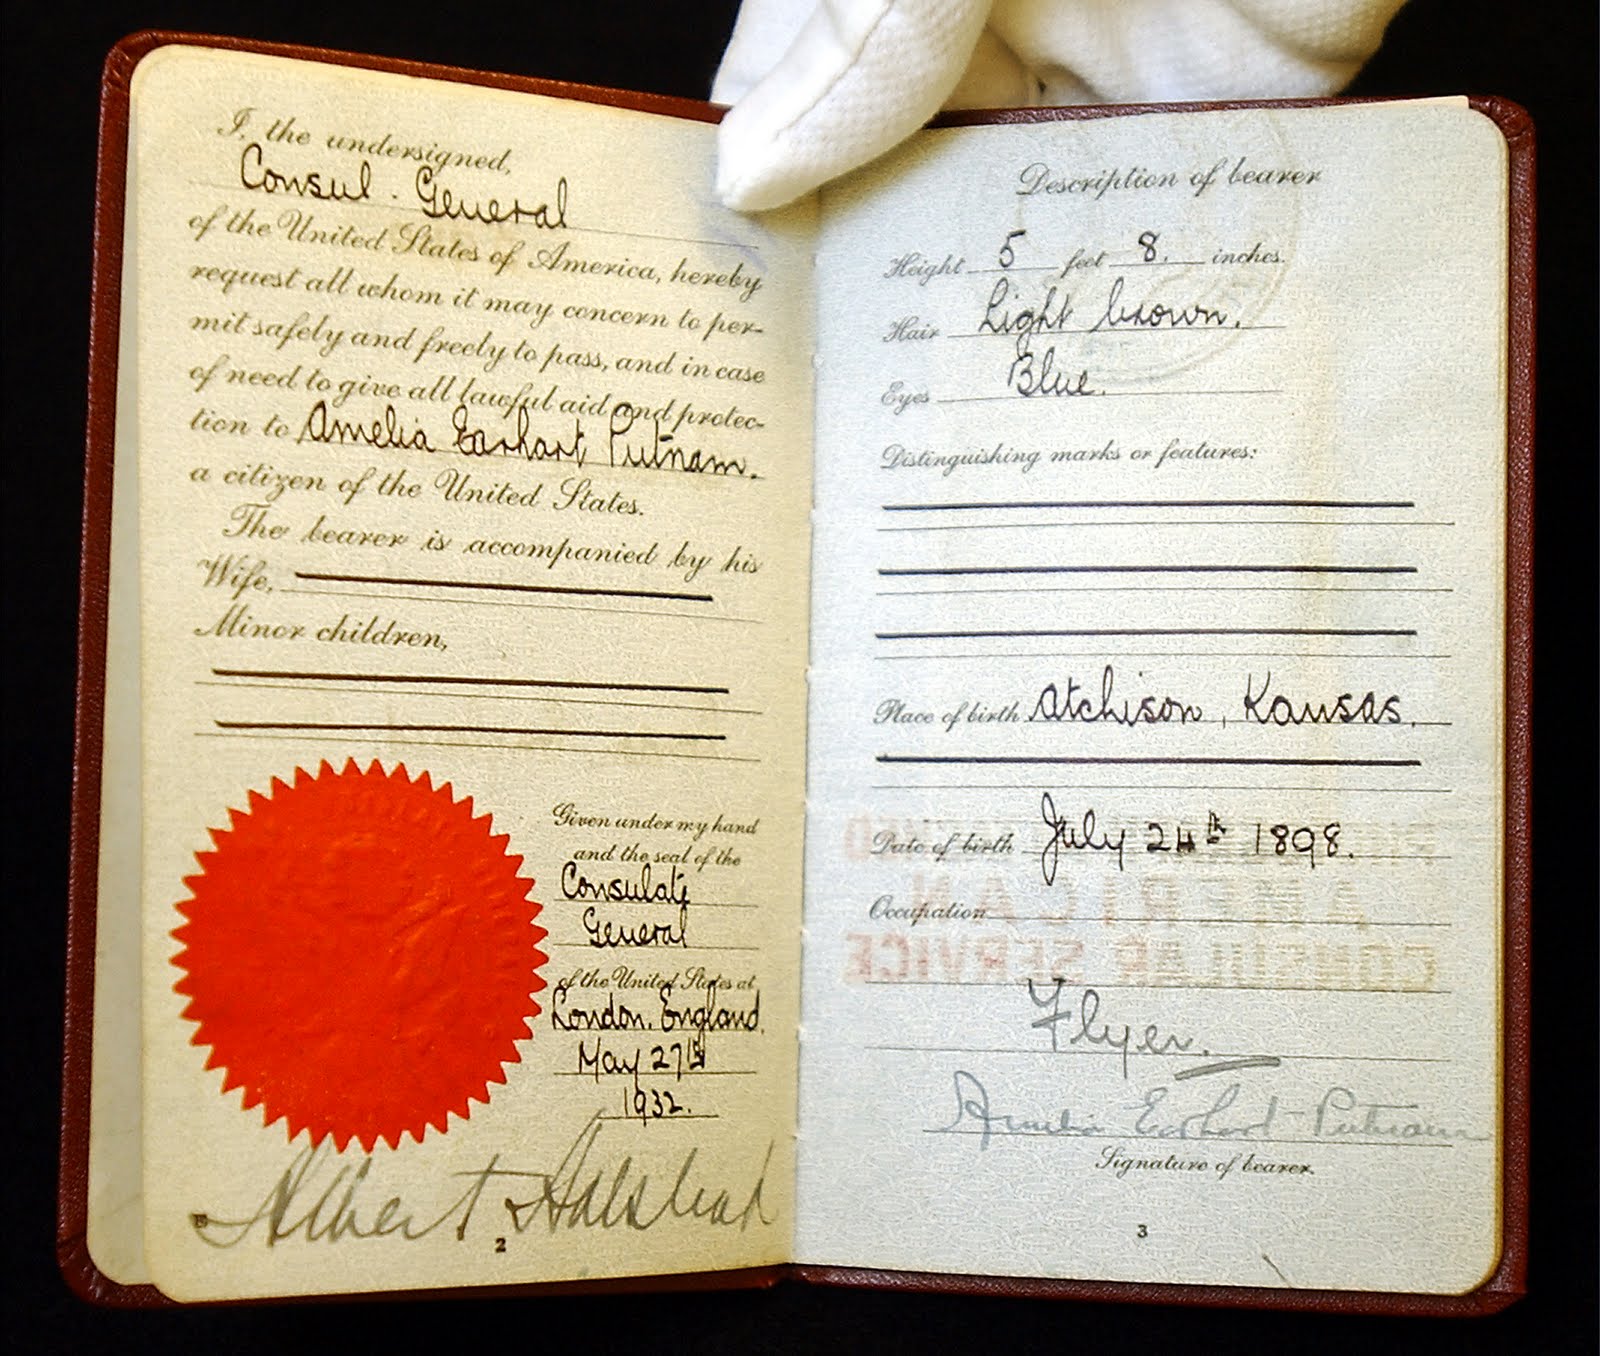 I, the undersigned,
Consul. General
of the United States of America, hereby
request all whom it may concern to per-
mit safely and freely to pass, and in case
of need to give all lawful aid and protec-
tion to Amelia Earhart Putnam.
a citizen of the United States.
The bearer is accompanied by his
Wife,
Minor children,
Given under my hand
and the seal of the
Consulate
General
of the United States at
London. England.
May 27th
1932.
Albert Halstead
2
Description of bearer
Height 5 feet 8. inches.
Hair Light brown.
Eyes Blue.
Distinguishing marks or features:
Place of birth Atchison, Kansas.
Date of birth July 24th 1898.
Occupation
AMERICAN
CONSULAR SERVICE
Flyer.
Amelia Earhart Putnam
Signature of bearer.
3